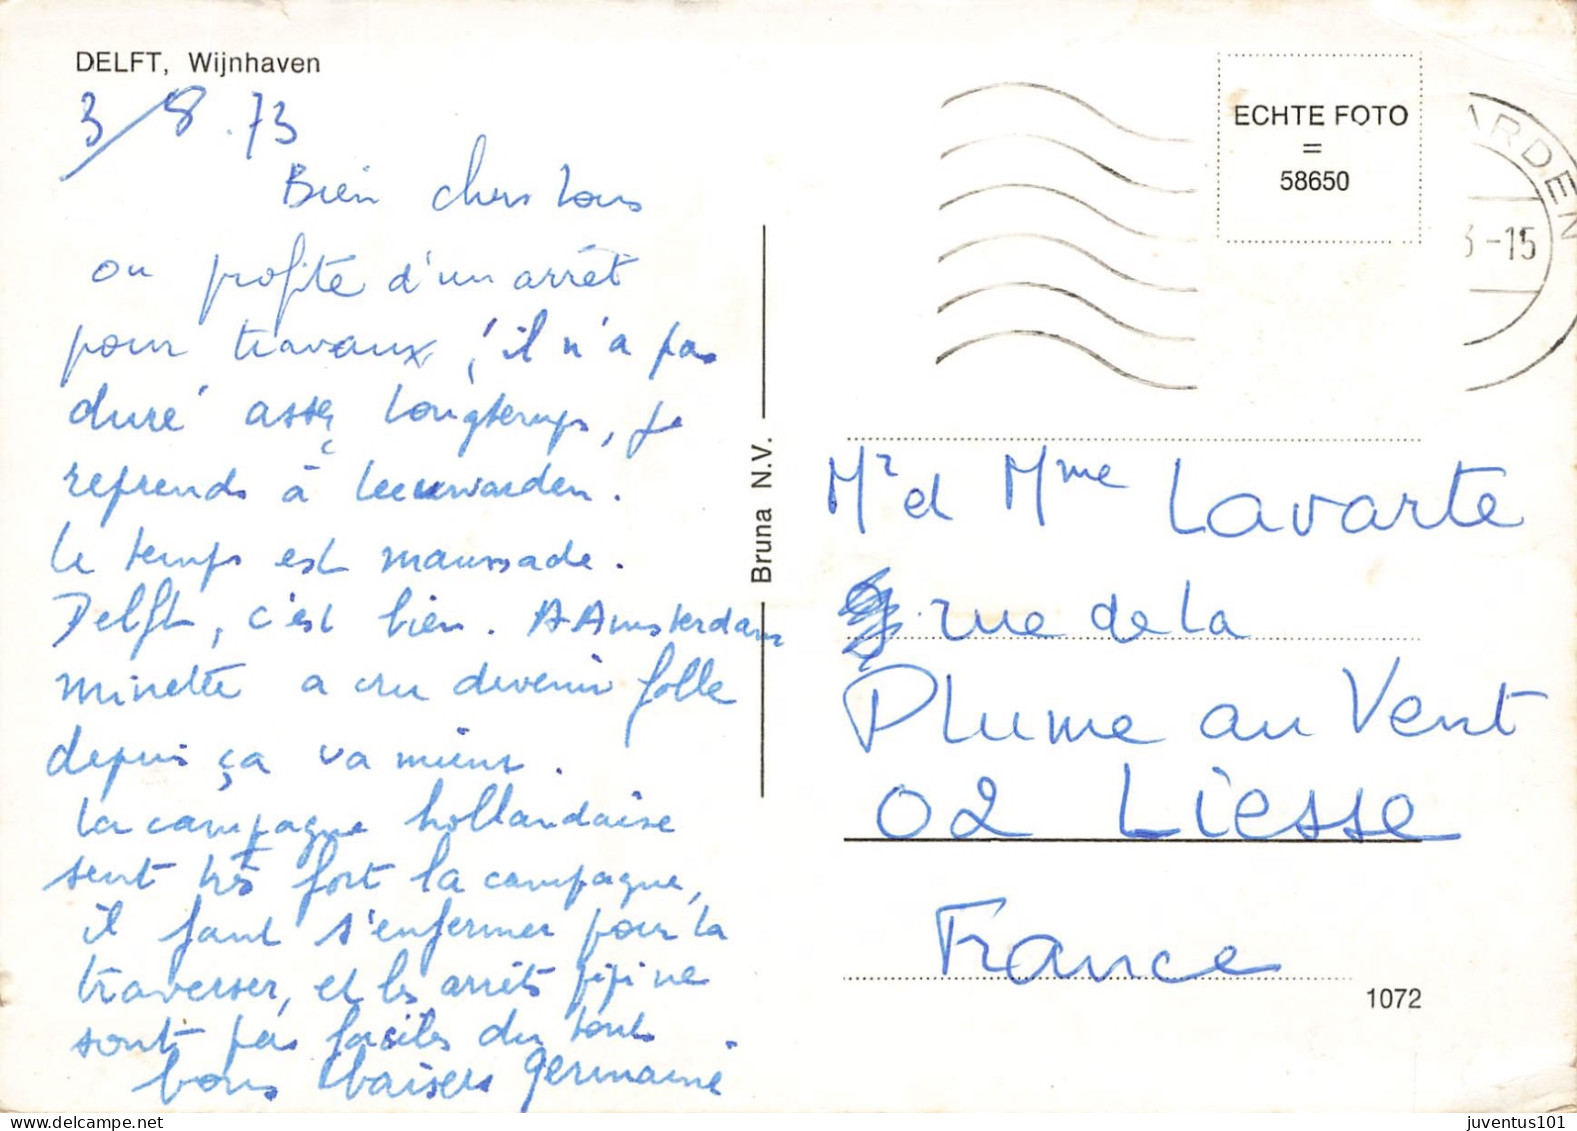 DELFT, Wijnhaven
3/8.73
Bien chers tous
on profite d'un arrêt
pour travaux, il n'a pas
duré assez longtemps, je
reprends à Leeuwarden.
Le temps est maussade.
Delft, c'est bien. A Amsterdam
minette a cru devenir folle
depuis ça va mieux.
La campagne hollandaise
sent très fort la campagne,
il faut s'enfermer pour la
traverser, et les arrêts pipi ne
sont pas faciles du tout.
bons baisers Germaine
Bruna N.V.
ECHTE FOTO
=
58650
ARDEN
3-15
Mr et Mme Lavarte
rue de la
Plume au Vent
02 Liesse
France
1072
juventus101